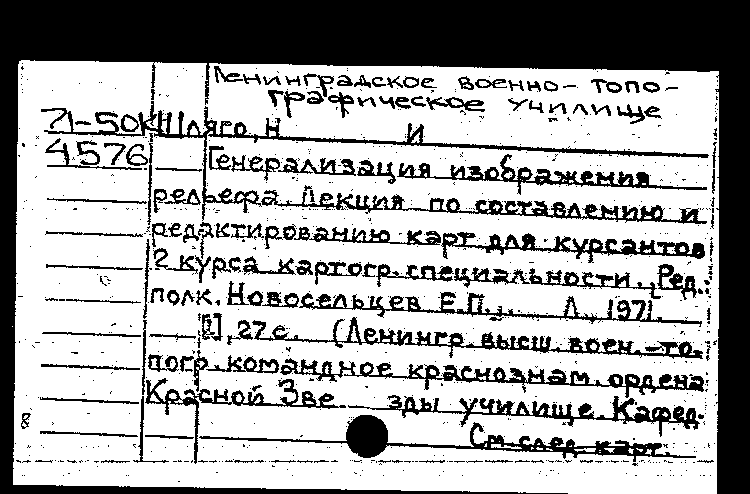 Ленинградское военно-топо-
графическое училище
71-50К Шляго, Н И
4576 Генерализация изображения
рельефа. Лекция по составлению и
редактированию карт для курсантов
2 курса картогр. специальности. [Ред.:
полк. Новосельцев Е.П.]. Л., 1971.
[1], 27 с. (Ленингр. высш. воен.-то-
погр. командное краснознам. ордена
Красной Зве зды училище. Кафед.
8 См. след. карт.